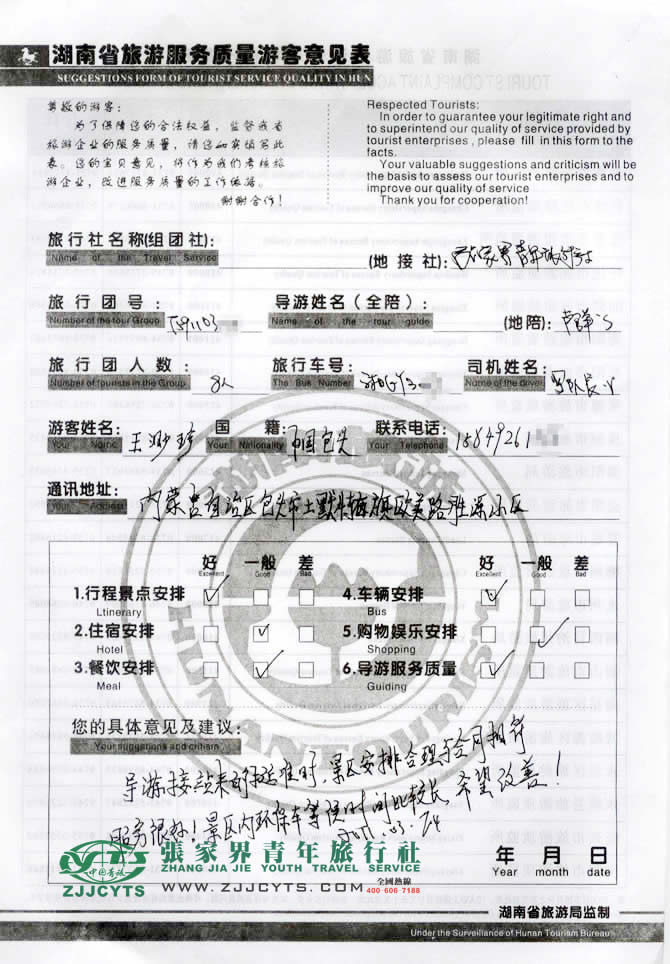 湖南省旅游服务质量游客意见表
SUGGESTIONS FORM OF TOURIST SERVICE QUALITY IN HUN
尊敬的游客:
为了保障您的合法权益,监督我省
旅游企业的服务质量,请您如实填写此
表。您的宝贵意见,将作为我们考核旅
游企业,改进服务质量的工作依据。
谢谢合作!
Respected Tourists:
In order to guarantee your legitimate right and
to superintend our quality of service provided by
tourist enterprises , please fill in this form to the
facts.
Your valuable suggestions and criticism will be
the basis to assess our tourist enterprises and to
improve our quality of service
Thank you for cooperation!
旅行社名称(组团社):
Name of the Travel Service
(地接社): 张家界青年旅行社
旅行团号:
Number of the tour Group
导游姓名(全陪):
Name of the tour guide
(地陪):
旅行团人数: 8人
Number of tourists in the Group
旅行车号:
The Bus Number
司机姓名:
Name of the driver
游客姓名: 王
Your Name
国籍: 中国包头
Your Nationality
联系电话: 15849261
Your Telephone
通讯地址: 内蒙古自治区包头市土默特右旗欧美路胜源小区
Your Address
好 一般 差 好 一般 差
Excellent Good Bad Excellent Good Bad
1.行程景点安排 4.车辆安排
Ltinerary Bus
2.住宿安排 5.购物娱乐安排
Hotel Shopping
3.餐饮安排 6.导游服务质量
Meal Guiding
HUNAN TOURISM
您的具体意见及建议:
Your suggestions and critism
导游接站来的较准时,景区安排合理与合同相符
服务很好!景区内环保车等候时间比较长,希望改善!
2011.03.24
中国青旅
ZJJCYTS
張家界青年旅行社
ZHANG JIA JIE YOUTH TRAVEL SERVICE
WWW.ZJJCYTS.COM 全國熱線
400 606 7188
年 月 日
Year month date
湖南省旅游局监制
Under the Surveillance of Hunan Tourism Bureau